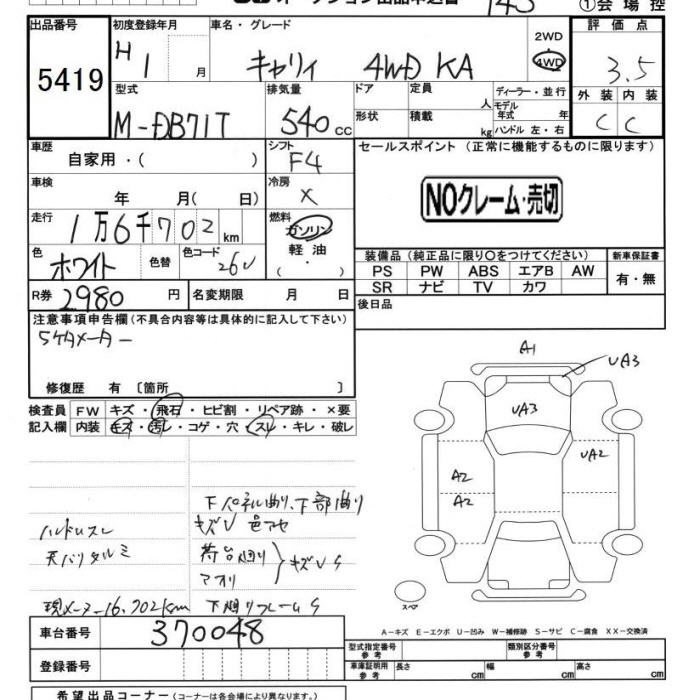 オークション出品申込書 145 ①会場控
出品番号 5419
初度登録年月 H1 月
車名・グレード キャリィ 4WD KA
2WD
4WD
評価点 3.5
外装 内装
C C
型式 M-DB71T
排気量 540 cc
ドア 形状
定員 人
積載 kg
ディーラー・並行
モデル年式 年
ハンドル 左・右
車歴 自家用・( )
シフト F4
セールスポイント (正常に機能するものに限ります)
NOクレーム・売切
車検 年 月( 日)
冷房 X
走行 1万6千702km
燃料 ガソリン 軽油 ( ・ )
色 ホワイト 色替 色コード 26U
装備品 (純正品に限り○をつけてください) 新車保証書
PS PW ABS エアB AW 有・無
SR ナビ TV カワ
R券 2980 円 名変期限 月 日
後日品
注意事項申告欄 (不具合内容等は具体的に記入して下さい)
5ケタメーター
修復歴 有 〔箇所 〕
検査員 FW キズ・飛石・ヒビ割・リペア跡・×要
記入欄 内装 キズ・汚レ・コゲ・穴・スレ・キレ・破レ
A1
UA3
UA3
A2
A2
UA2
スペア
下パネル曲り、下部曲り
ハンドルスレ キズU 色アセ
天バリタルミ 荷台廻り アオリ キズUS
現メーター16,702km 下廻りフレームS
A－キズ E－エクボ U－凹み W－補修跡 S－サビ C－腐食 XX－交換済
車台番号 370048
登録番号
型式指定番号 参考 類別区分番号 参考
車庫証明用 参考 長さ cm 幅 cm 高さ cm
希望出品コーナー (コーナーは各会場により異なります。)